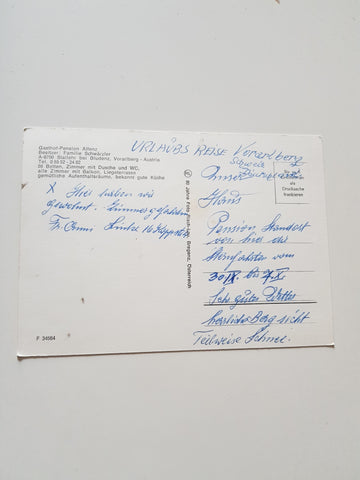 Gasthof-Pension Alfenz
Besitzer: Familie Schwärzler
A-6700 Stallehr bei Bludenz, Vorarlberg - Austria
Tel. 0 55 52 - 24 82
56 Betten, Zimmer mit Dusche und WC,
alle Zimmer mit Balkon, Liegeterrasse
gemütliche Aufenthaltsräume, bekannt gute Küche
X Hier haben wir
gewohnt.
Fr. Linke
F 34564
80 Jahre Foto Risch-Lau, Bregenz, Österreich
URLAUBS REISE Vorarlberg
Schweiz
als
Drucksache
frankieren
Hans
Pension Standort
von hier die
vom
30/IX. bis 7/X.
Sehr gutes Wetter
herrliche Berg sicht
Teilweise Schnee.